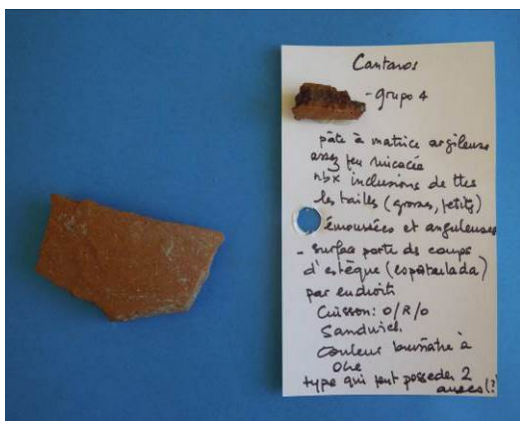 Cantaros
- grupo 4
pâte à matrice argileuse
assez peu micacée
nbx inclusions de ttes
les tailles (grosses, petits)
émoussées et anguleuses
- surface porte des coups
d'estèque (espatulada)
par endroits
Cuisson: O/R/O
Sandwich.
couleur brunâtre à
type qui peut posseder 2
anses (?)